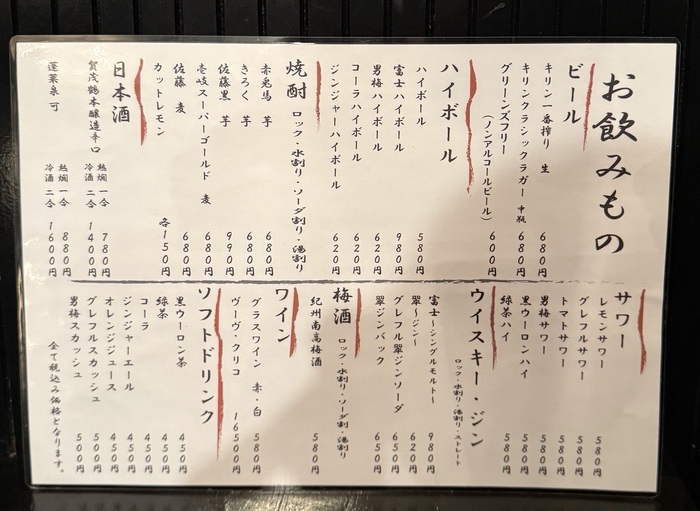 お飲みもの
ビール
キリン一番搾り 生 680円
キリンクラシックラガー 中瓶 680円
グリーンズフリー
(ノンアルコールビール) 600円
ハイボール
ハイボール 580円
富士ハイボール 980円
男梅ハイボール 620円
コーラハイボール 620円
ジンジャーハイボール 620円
焼酎 ロック・水割り・ソーダ割り・湯割り
赤兎馬 芋 680円
きろく 芋 680円
佐藤黒 芋 990円
壱岐スーパーゴールド 麦 680円
佐藤 麦 680円
カットレモン 各150円
日本酒
賀茂鶴本醸造辛口 熱燗 一合 780円
冷酒 二合 1400円
蓬莱泉 可 熱燗 一合 880円
冷酒 二合 1600円
サワー
レモンサワー 580円
グレフルサワー 580円
トマトサワー 580円
男梅サワー 580円
黒ウーロンハイ 580円
緑茶ハイ 580円
ウイスキー・ジン
ロック・水割り・ソーダ割り・湯割り・ストレート
富士~シングルモルト~ 980円
翠~ジン~ 620円
グレフル翠ジンソーダ 650円
翠ジンバック 650円
梅酒 ロック・水割り・ソーダ割り・湯割り
紀州南高梅酒 580円
ワイン
グラスワイン 赤・白 580円
ヴーヴ・クリコ 16500円
ソフトドリンク
黒ウーロン茶 450円
緑茶 450円
コーラ 450円
ジンジャーエール 450円
オレンジジュース 450円
グレフルスカッシュ 500円
男梅スカッシュ 500円
全て税込み価格となります。